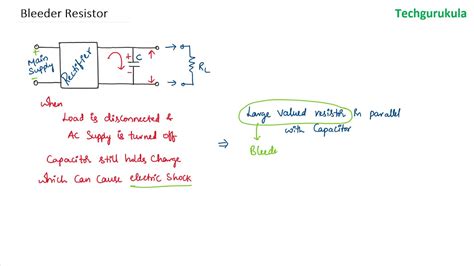 Bleeder Resistor
Techgurukula
Main
Supply
Rectifier
+
-
C
+
-
RL
when
Load is disconnected &
AC Supply is turned off
Capacitor still holds Charge
which can cause electric shock
⇒
Large valued resistor in parallel
with Capacitor
Bleede